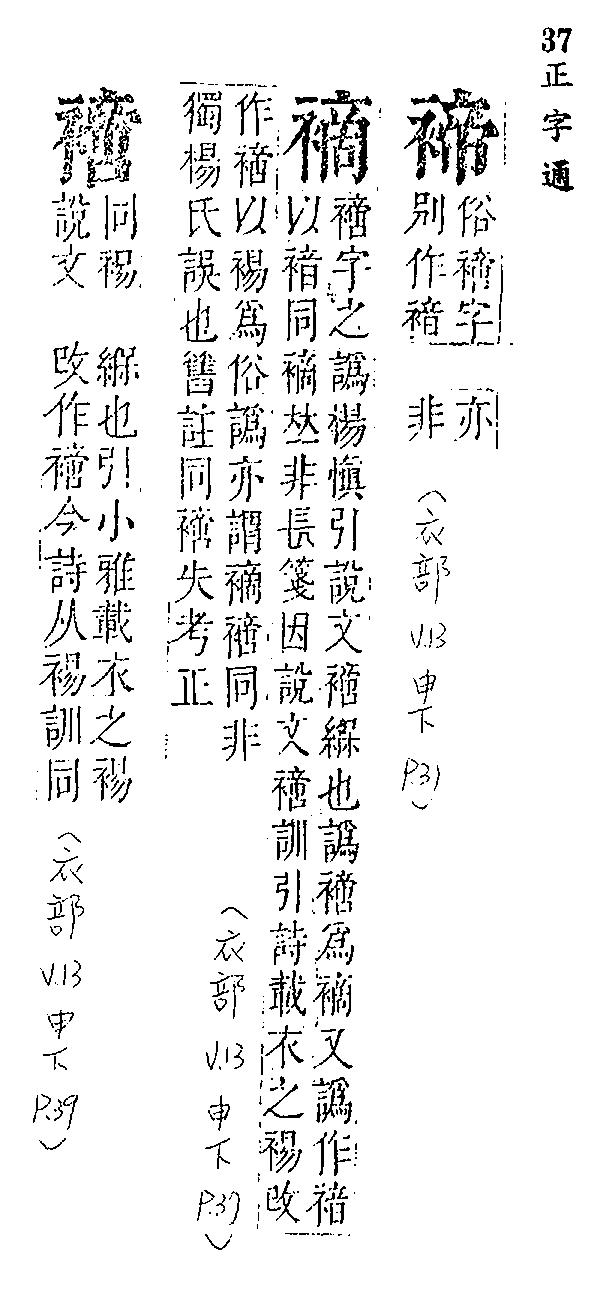 37 正字通
褅
俗𧝐字 亦
別作 非
(衣部 V.13 申下 P.31)
𧝐字之譌楊慎引說文𧝐緥也譌𧝐爲 又譌作
以 同 𠀤非長箋因說文𧝐訓引詩載衣之裼改
作𧝐以裼爲俗譌亦謂 𧝐同非
獨楊氏誤也舊註同𧝐失考正
(衣部 V.13 申下 P.39)
𧝐
同裼 緥也引小雅載衣之裼
說文 改作𧝐今詩从裼訓同
(衣部 V.13 申下 P.39)